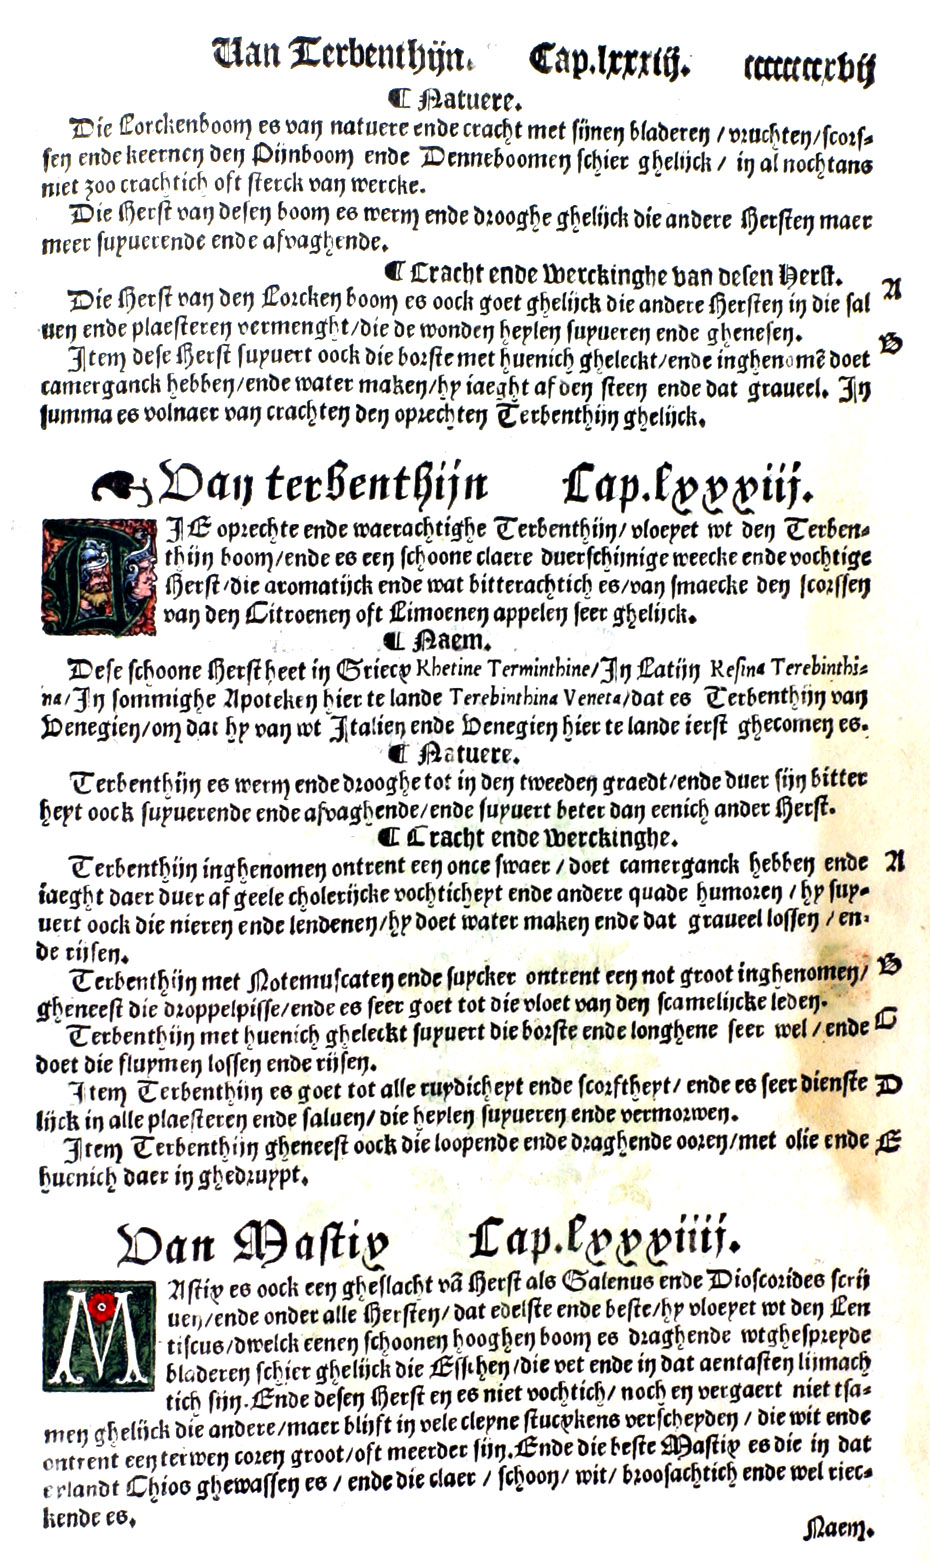 Van Terbenthijn. Cap.lxxxiij. ccccccccxvij
¶ Natuere.
Die Lorckenboom es van natuere ende cracht met sijnen bladeren / vruchten/scors-
sen ende keernen den Pijnboom ende Denneboomen schier ghelijck / in al nochtans
niet zoo crachtich oft sterck van wercke.
Die Herst van desen boom es werm ende drooghe ghelijck die andere Hersten maer
meer suyuerende ende afvaghende.
¶ Cracht ende werckinghe van desen Herst.
Die Herst van den Lorcken boom es oock goet ghelijck die andere Hersten in die sal A
uen ende plaesteren vermenght/die de wonden heylen suyueren ende ghenesen.
Item dese Herst suyuert oock die borste met huenich gheleckt/ende inghenomē doet B
camerganck hebben/ende water maken/hy iaeght af den steen ende dat graueel. In
summa es volnaer van crachten den oprechten Terbenthijn ghelijck.
Van terbenthijn Cap.lxxxiij.
DIE oprechte ende waerachtighe Terbenthijn/ vloeyet wt den Terben-
thijn boom/ende es een schoone claere duerschijnige weecke ende vochtige
Herst/die aromatijck ende wat bitterachtich es/van smaecke den scorssen
van den Citroenen oft Limoenen appelen seer ghelijck.
¶ Naem.
Dese schoone Herst heet in Griecx Rhetine Terminthine/In Latijn Resina Terebinthi-
na/In sommighe Apoteken hier te lande Terebinthina Veneta/dat es Terbenthijn van
Venegien/om dat hy van wt Italien ende Venegien hier te lande ierst ghecomen es.
¶ Natuere.
Terbenthijn es werm ende drooghe tot in den tweeden graedt/ende duer sijn bitter
heyt oock suyuerende ende afvaghende/ende suyuert beter dan eenich ander Herst.
¶ Cracht ende werckinghe.
Terbenthijn inghenomen ontrent een once swaer / doet camerganck hebben ende A
iaeght daer duer af geele cholerijcke vochticheyt ende andere quade humoren / hy suy-
uert oock die nieren ende lendenen/hy doet water maken ende dat graueel lossen / en-
de rijsen.
Terbenthijn met Notemuscaten ende suycker ontrent een not groot inghenomen/ B
gheneest die droppelpisse/ende es seer goet tot die vloet van den scamelijcke leden.
Terbenthijn met huenich gheleckt suyuert die borste ende longhene seer wel / ende C
doet die fluymen lossen ende rijsen.
Item Terbenthijn es goet tot alle ruydicheyt ende scorftheyt/ ende es seer dienste D
lijck in alle plaesteren ende saluen/ die heylen suyueren ende vermorwen.
Item Terbenthijn gheneest oock die loopende ende draghende ooren/met olie ende E
huenich daer in ghedruypt.
Van Mastix Cap.lxxxiiij.
MAstix es oock een gheslacht vā Herst als Galenus ende Dioscorides scrij
uen/ende onder alle Hersten/ dat edelste ende beste/hy vloeyet wt den Len
tiscus/dwelck eenen schoonen hooghen boom es draghende wtghespreyde
bladeren schier ghelijck die Esschen/die vet ende in dat aentasten lijmach
tich sijn.Ende desen Herst en es niet vochtich/ noch en vergaert niet tsa-
men ghelijck die andere/maer blijft in vele cleyne stucxkens verscheyden / die wit ende
ontrent een terwen coren groot/oft meerder sijn.Ende die beste Mastix es die in dat
erlandt Chios ghewassen es / ende die claer / schoon/ wit/ broosachtich ende wel riec-
kende es.
Naem.